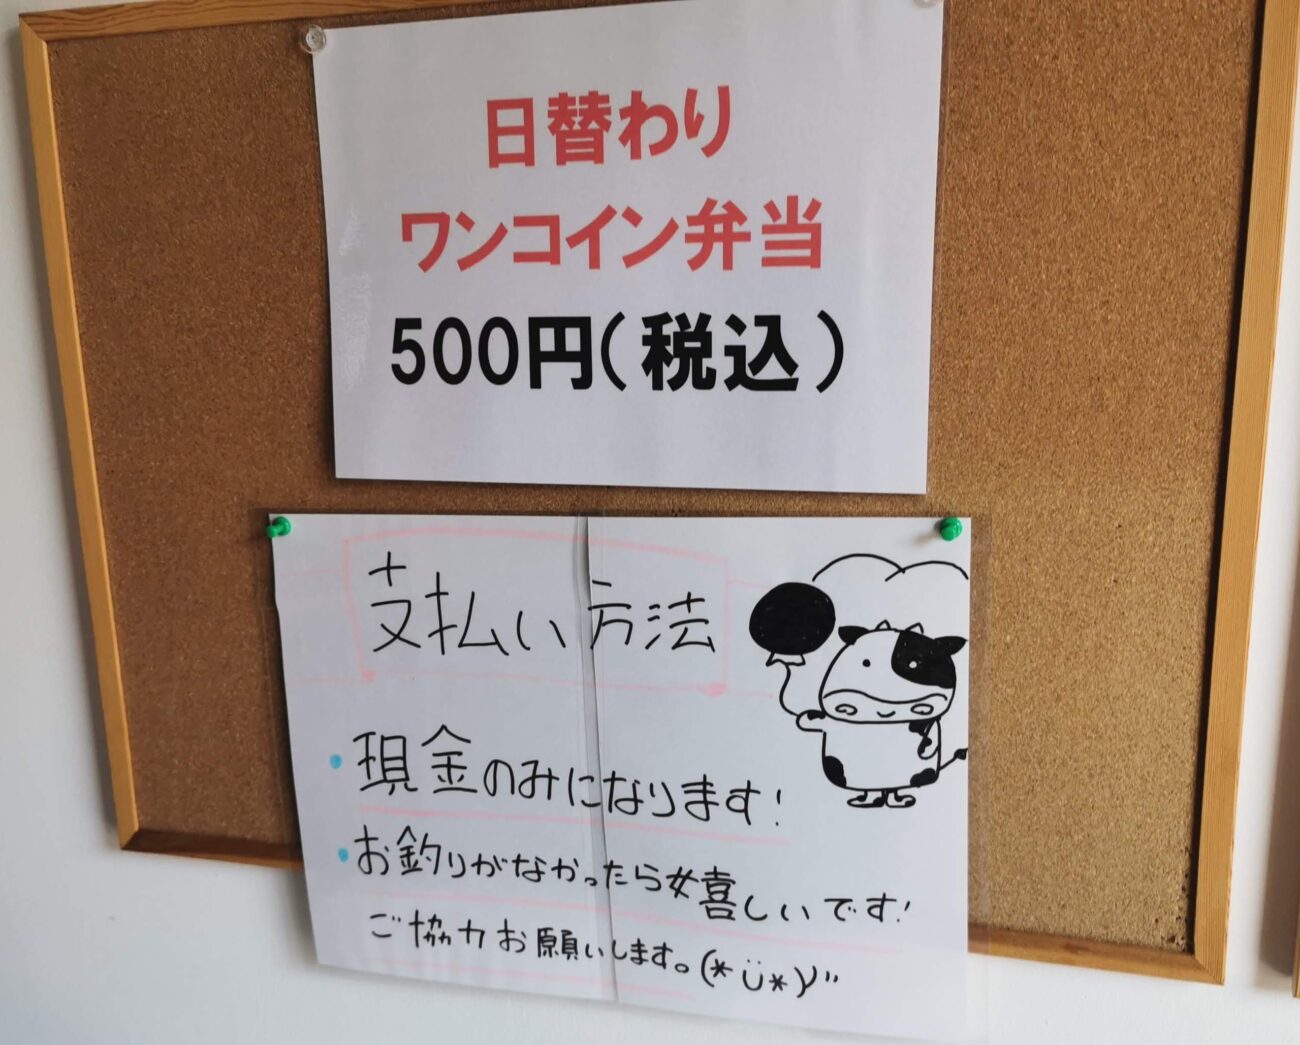 日替わり
ワンコイン弁当
500円(税込)
支払い方法
・現金のみになります!
・お釣りがなかったら嬉しいです!
ご協力お願いします。(*ü*)ノ"